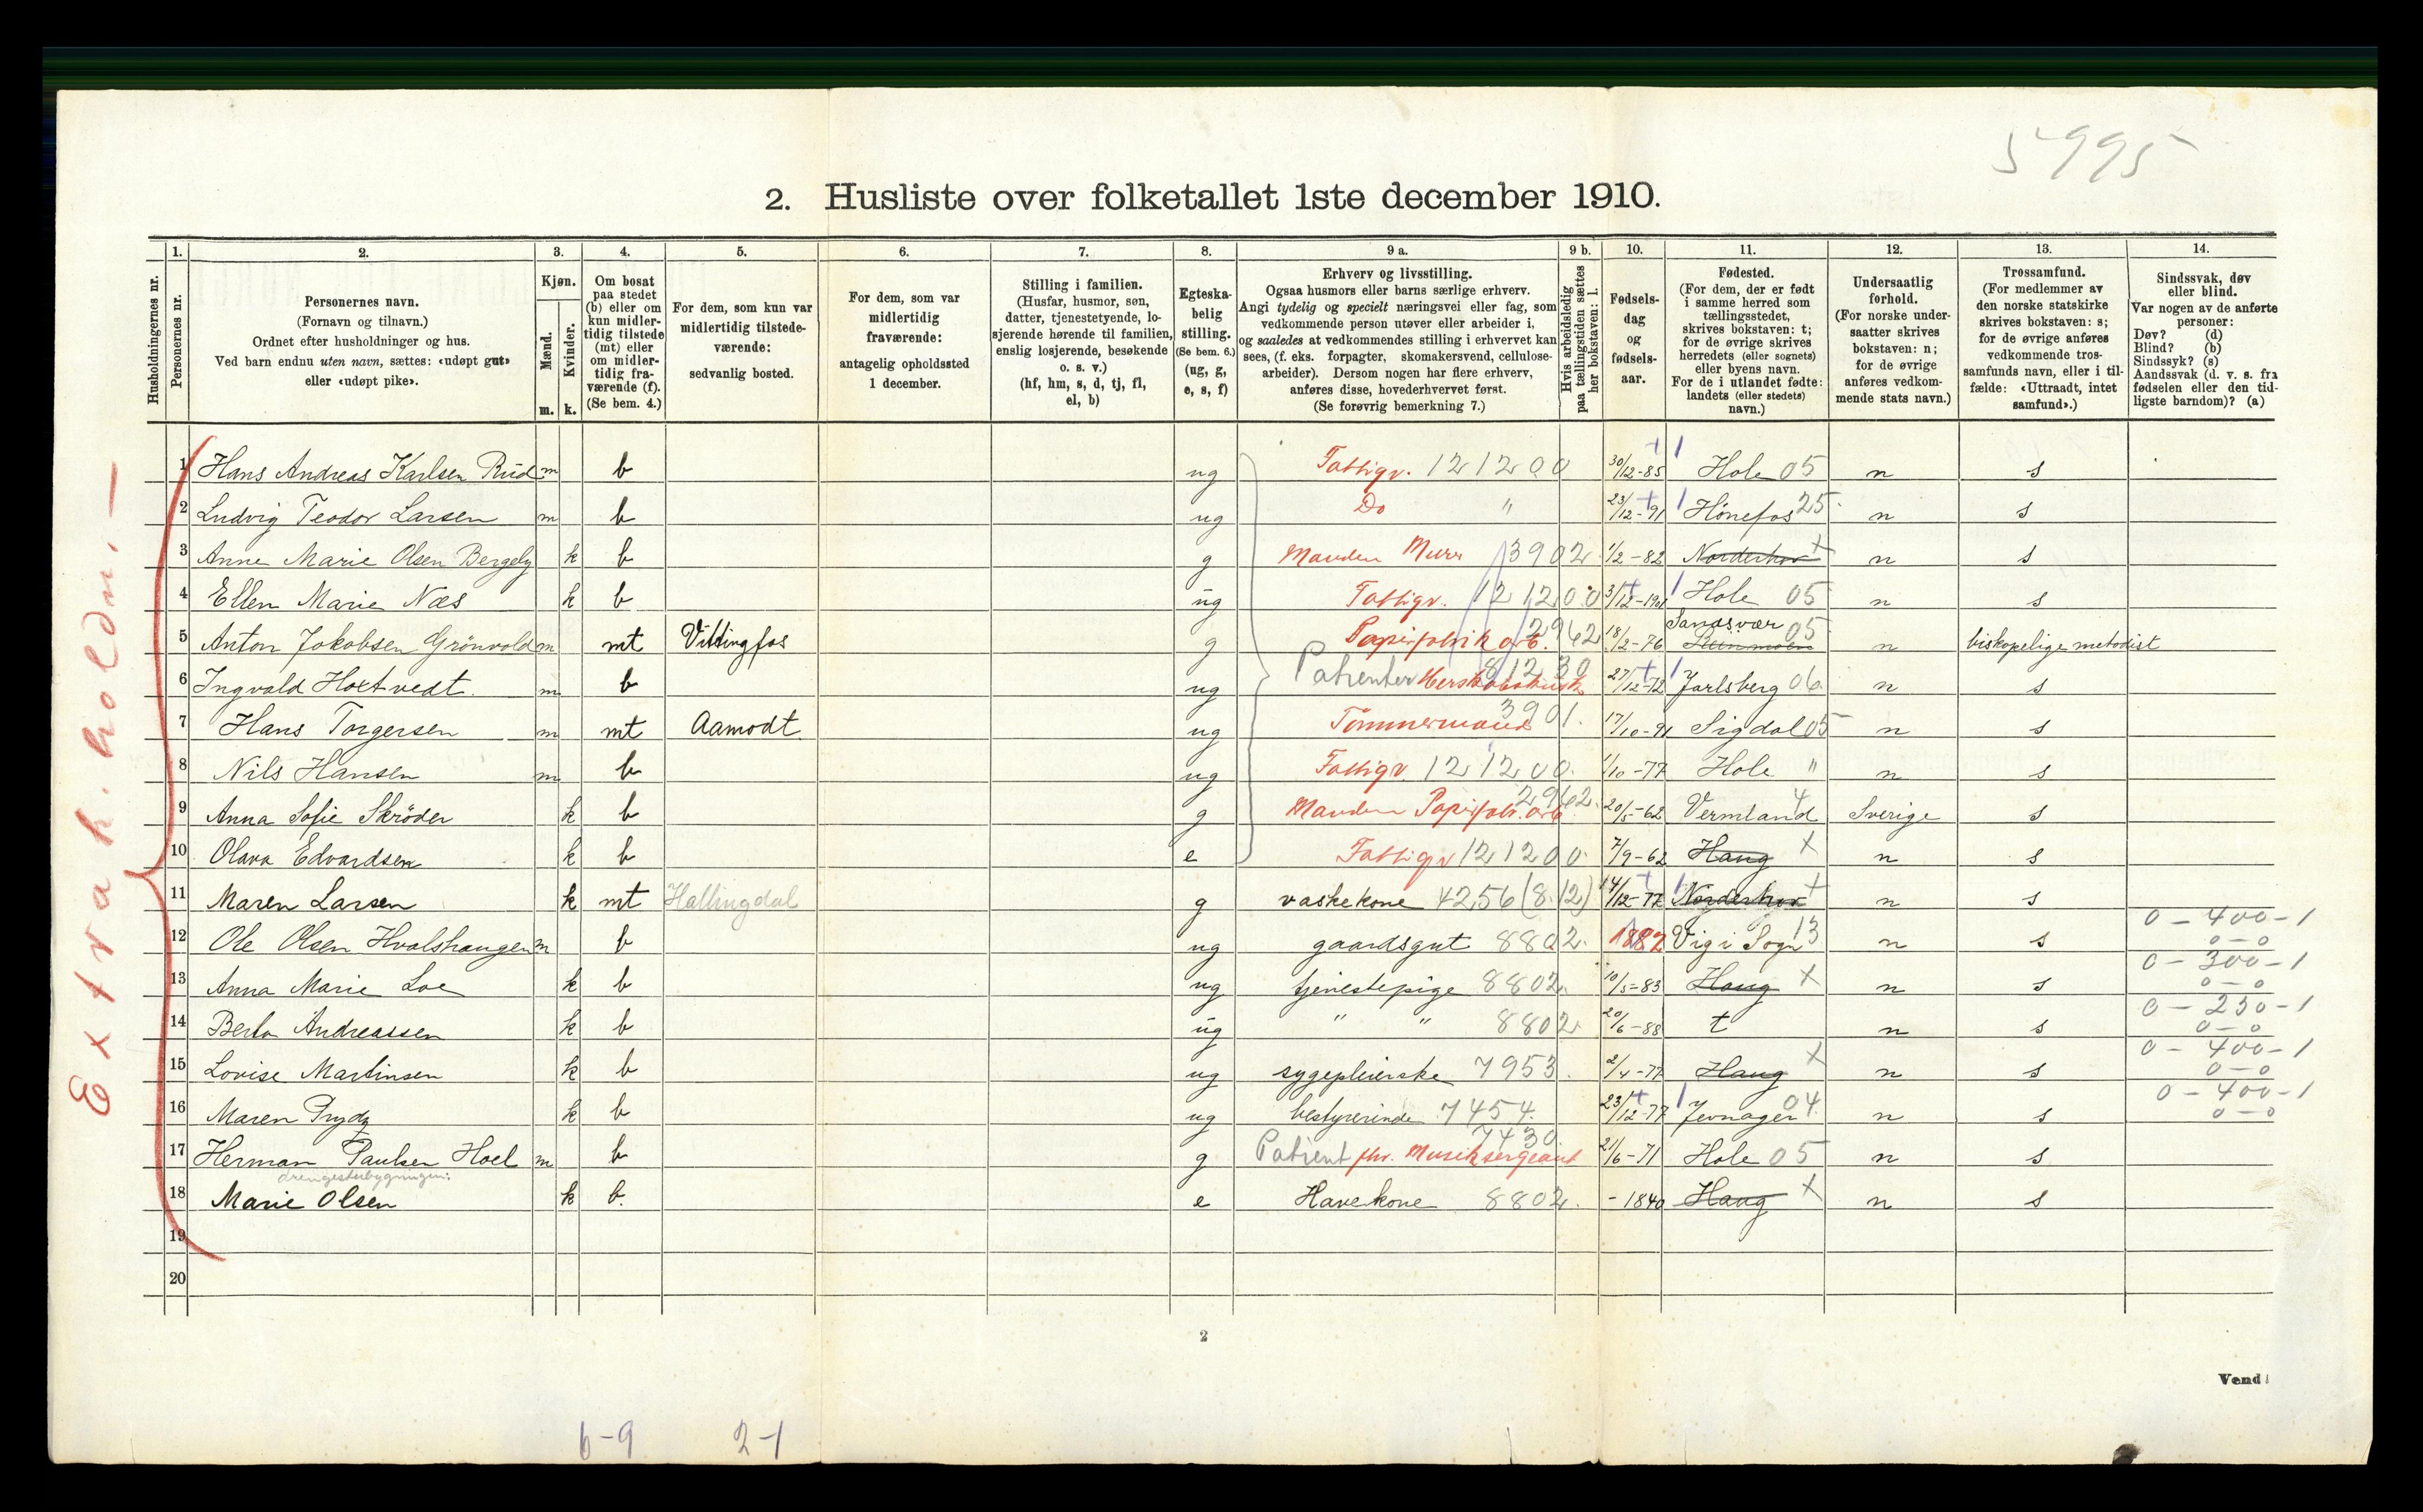 5995
2. Husliste over folketallet 1ste december 1910.
Husholdningernes nr.
1. Personernes nr.
2. Personernes navn. (Fornavn og tilnavn.) Ordnet efter husholdninger og hus. Ved barn endnu uten navn, sættes: «udøpt gut» eller «udøpt pike».
3. Kjøn. Mænd. m. Kvinder. k.
4. Om bosat paa stedet (b) eller om kun midlertidig tilstede (mt) eller om midlertidig fraværende (f). (Se bem. 4.)
5. For dem, som kun var midlertidig tilstedeværende: sedvanlig bosted.
6. For dem, som var midlertidig fraværende: antagelig opholdssted 1 december.
7. Stilling i familien. (Husfar, husmor, søn, datter, tjenestetyende, losjerende hørende til familien, enslig losjerende, besøkende o. s. v.) (hf, hm, s, d, tj, fl, el, b)
8. Egteskabelig stilling. (Se bem. 6.) (ug, g, e, s, f)
9 a. Erhverv og livsstilling. Ogsaa husmors eller barns særlige erhverv. Angi tydelig og specielt næringsvei eller fag, som vedkommende person utøver eller arbeider i, og saaledes at vedkommendes stilling i erhvervet kan sees, (f. eks. forpagter, skomakersvend, cellulosearbeider). Dersom nogen har flere erhverv, anføres disse, hovederhvervet først. (Se forøvrig bemerkning 7.)
9 b. Hvis arbeidsledig paa tællingstiden sættes her bokstaven: l.
10. Fødselsdag og fødselsaar.
11. Fødested. (For dem, der er født i samme herred som tællingsstedet, skrives bokstaven: t; for de øvrige skrives herredets (eller sognets) eller byens navn. For de i utlandet fødte: landets (eller stedets) navn.)
12. Undersaatlig forhold. (For norske undersaatter skrives bokstaven: n; for de øvrige anføres vedkommende stats navn.)
13. Trossamfund. (For medlemmer av den norske statskirke skrives bokstaven: s; for de øvrige anføres vedkommende trossamfunds navn, eller i tilfælde: «Uttraadt, intet samfund».)
14. Sindssvak, døv eller blind. Var nogen av de anførte personer: Døv? (d) Blind? (b) Sindssyk? (s) Aandssvak (d. v. s. fra fødselen eller den tidligste barndom)? (a)
Extrah. holdn. —
1 Hans Andreas Karlsen Rud m b ug Fattigv. 121200 30/12-85 Hole 05 n s
2 Ludvig Teodor Larsen m b ug Do " 23/12-91 Hønefos 25 n s
3 Anne Marie Olsen Bergeby k b g Manden Murer 3902 1/2-82 Norderhov n s
4 Ellen Marie Næs k b ug Fattigv. 121200 3/12-1901 Hole 05 n s
5 Anton Jokobsen Grönvold m mt Vittingfos g Papirfabrik arb. 2962 18/2-76 Sandsvær 05 n biskopelige metodist
6 Ingvald Hoxtvedt m b ug Patienter 81230 27/12-72 Jarlsberg 06 n s
7 Hans Torgersen m mt Aamodt ug Tömmermand 3901 17/10-91 Sigdal 05 n s
8 Nils Hansen m b ug Fattigv. 121200 1/10-77 Hole " n s
9 Anna Sofie Skröder k b g Manden Papirfabr. arb. 2962 20/5-62 Vermland 4 Sverige s
10 Olava Edvardsen k b e Fattigv 121200 7/9-62 Haug n s
11 Maren Larsen k mt Hallingdal g vaskekone 4256 (8.12) 14/12-77 Norderhov n s
12 Ole Olsen Hvalshaugen m b ug gaardsgut 8802 1882 Vig i Sogn 13 n s 0-400-1 0-0
13 Anna Marie Loe k b ug tjenestepige 8802 10/5-83 Haug n s 0-300-1 0-0
14 Berta Andreassen k b ug " " 8802 20/6-88 t n s 0-230-1 0-0
15 Lovise Martinsen k b ug sygepleierske 7953 2/4-77 Haug n s 0-400-1 0-0
16 Maren Prydz k b ug bestyrerinde 7454 23/12-77 Jevnager 04 n s 0-400-1 0-0
17 Herman Paulsen Hoel m b g Patient fhv. Musiksergeant 7430 21/6-71 Hole 05 n s
drengestubygningen:
18 Marie Olsen k b. e Havekone 8802 -1840 Haug n s
19
20
2
Vend!
6-9 2-1